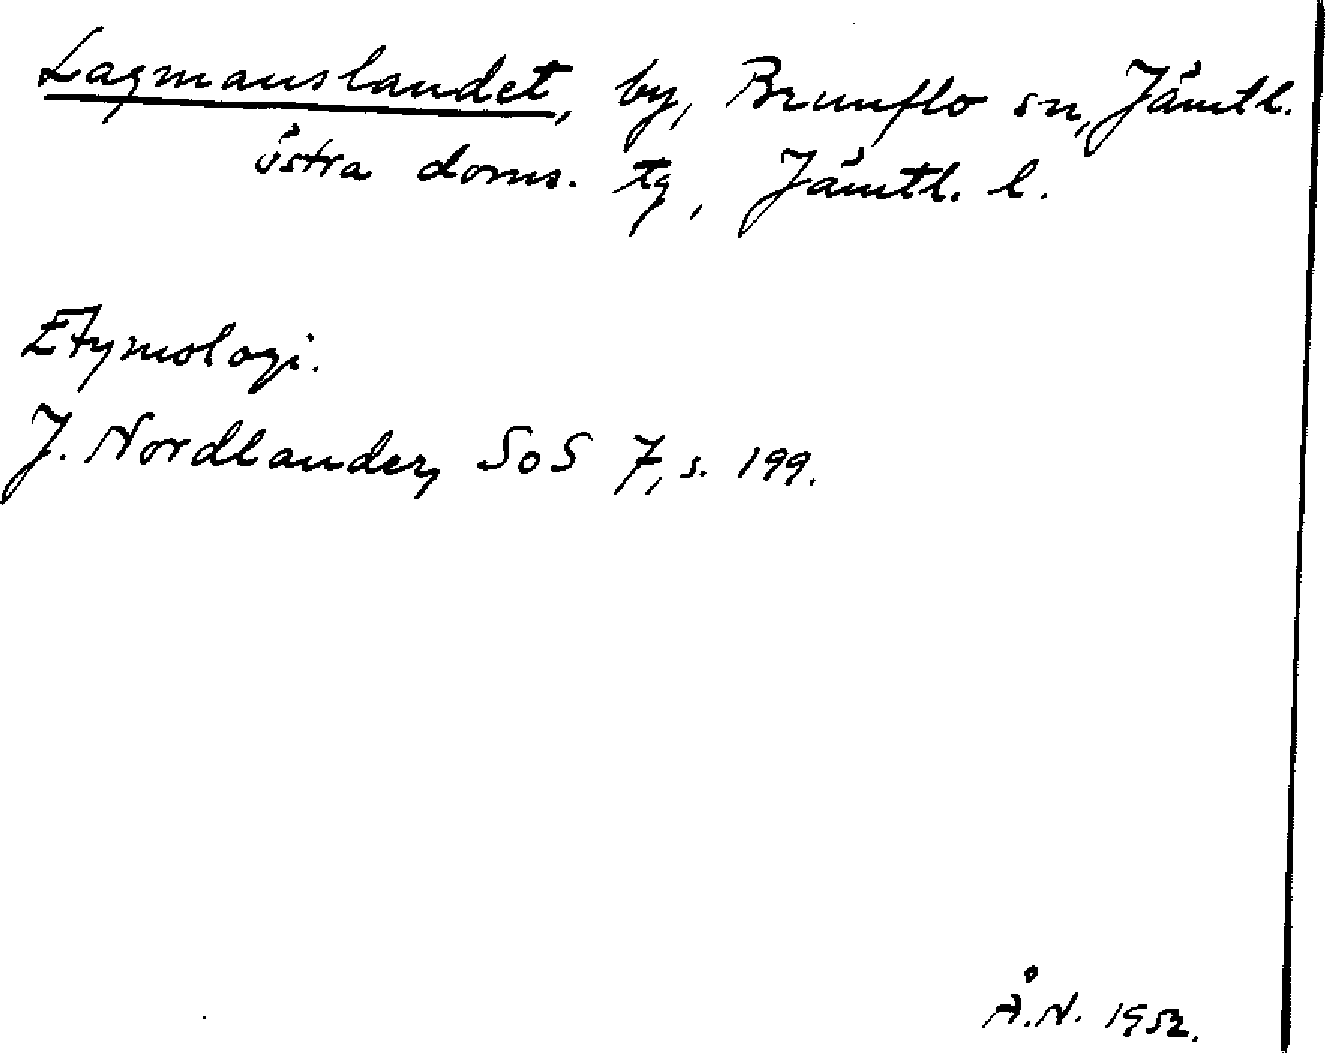 Lagmanslandet, by, Brunflo sn, Jämtl.
östra doms. tg, Jämtl. l.
Etymologi.
J. Nordlander, SoS 7, s. 199.
Å.N. 1952.